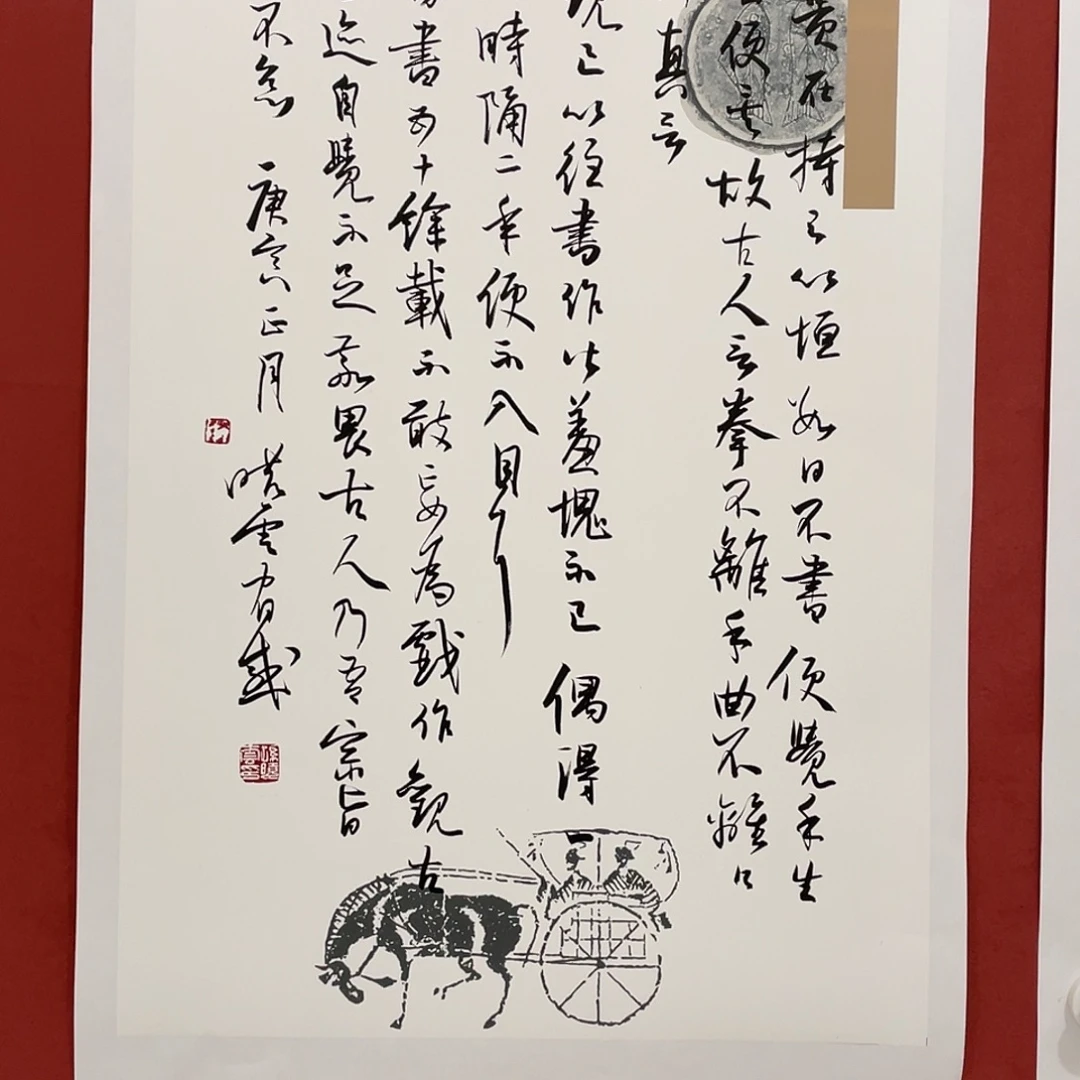 貴在持之以恒數日不書便覺手生
便云故古人云拳不離手曲不離口
真言
現已以往書作皆羞愧不已偶得一
時隔二年便不入目了
書五十餘載不敢妄為戲作觀古
迹自覺不足敬畏古人乃吾宗旨
不怠
庚寅正月